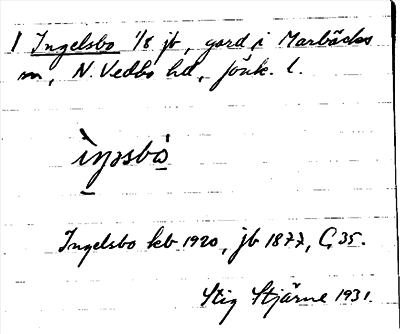 1 Ingelsbo 1/8 jb, gård i Marbäcks
sn, N. Vedbo hd, Jönk. l.
ìŋəsbó
Ingelsbo kb 1920, jb 1877, G 35.
Stig Stjärne 1931.